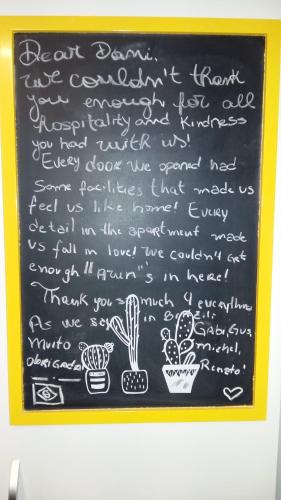 Dear Dani,
We couldn't thank
you enough for all
hospitality and kindness
you had with us!
Every door we opened had
some facilities that made us
feel us like home! Every
detail in the apartment made
us fall in love! We couldn't get
enough "Awn"s in here!
Thank you so much 4 everything
As we say in Brazil:
Muito
obrigado
Gabi, Gus,
Michel,
Renato